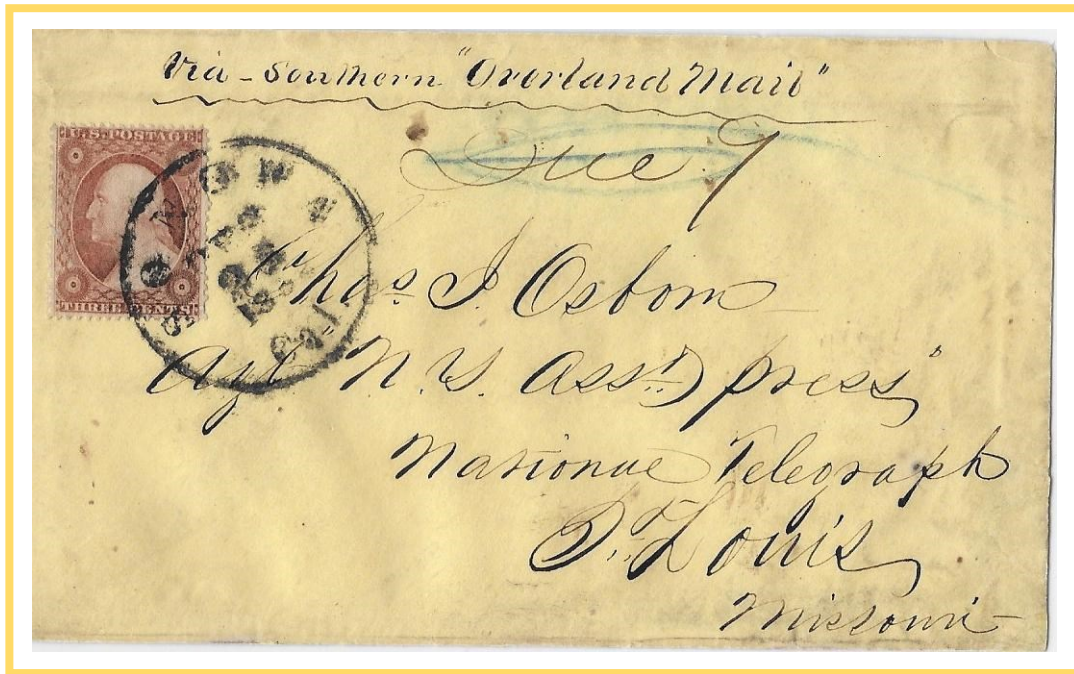 Via - Southern "Overland Mail"
Due 7
U.S. POSTAGE
THREE CENTS
Chas J. Osborn
Agt N. Y. Ass.d press,
National Telegraph
St. Louis
Missouri